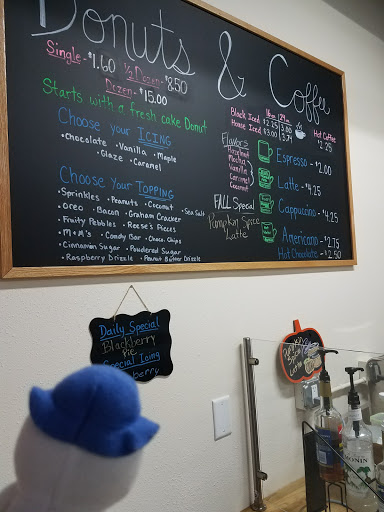 Donuts & Coffee
Single - $1.60 ½ Dozen - $8.50
Dozen - $15.00
Starts with a fresh cake Donut
Choose your ICING
• Chocolate • Vanilla • Maple
• Glaze • Caramel
Choose your TOPPING
• Sprinkles • Peanuts • Coconut • Sea Salt
• Oreo • Bacon • Graham Cracker
• Fruity Pebbles • Reese's Pieces
• M&M's • Candy Bar • Choco. Chips
• Cinnamon Sugar • Powdered Sugar
• Raspberry Drizzle • Peanut Butter Drizzle
16oz 24oz
Black Iced $2.75
House Iced $3.00
Hot Coffee
Flavors
Hazelnut
Mocha
Vanilla
Caramel
Coconut
FALL Special
Pumpkin Spice
Latte
Espresso - $2.00
Latte - $4.25
Cappuccino - $4.25
Americano - $2.75
Hot Chocolate - $2.50
Daily Special
Blackberry
Pie
Special Icing
MONIN